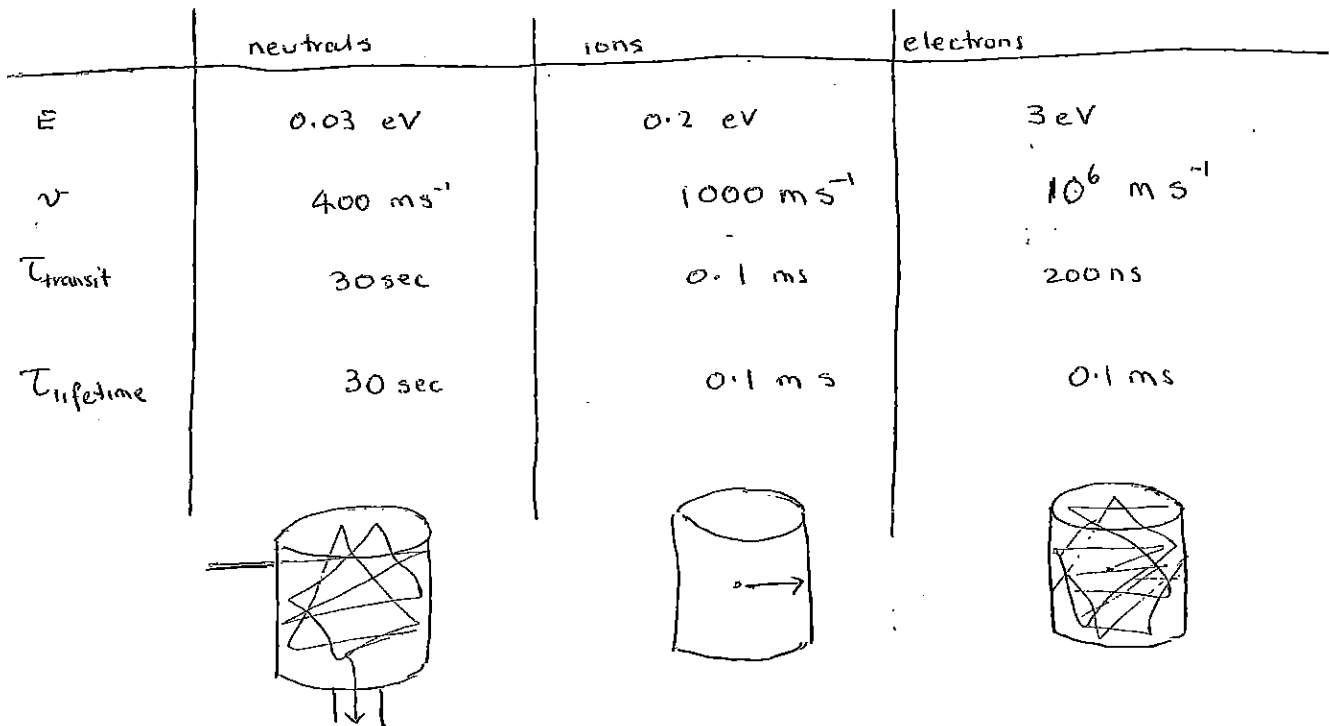 neutrals ions electrons
E 0.03 eV 0.2 eV 3 eV
v 400 ms⁻¹ 1000 ms⁻¹ 10⁶ ms⁻¹
τtransit 30 sec 0.1 ms 200 ns
τlifetime 30 sec 0.1 ms 0.1 ms